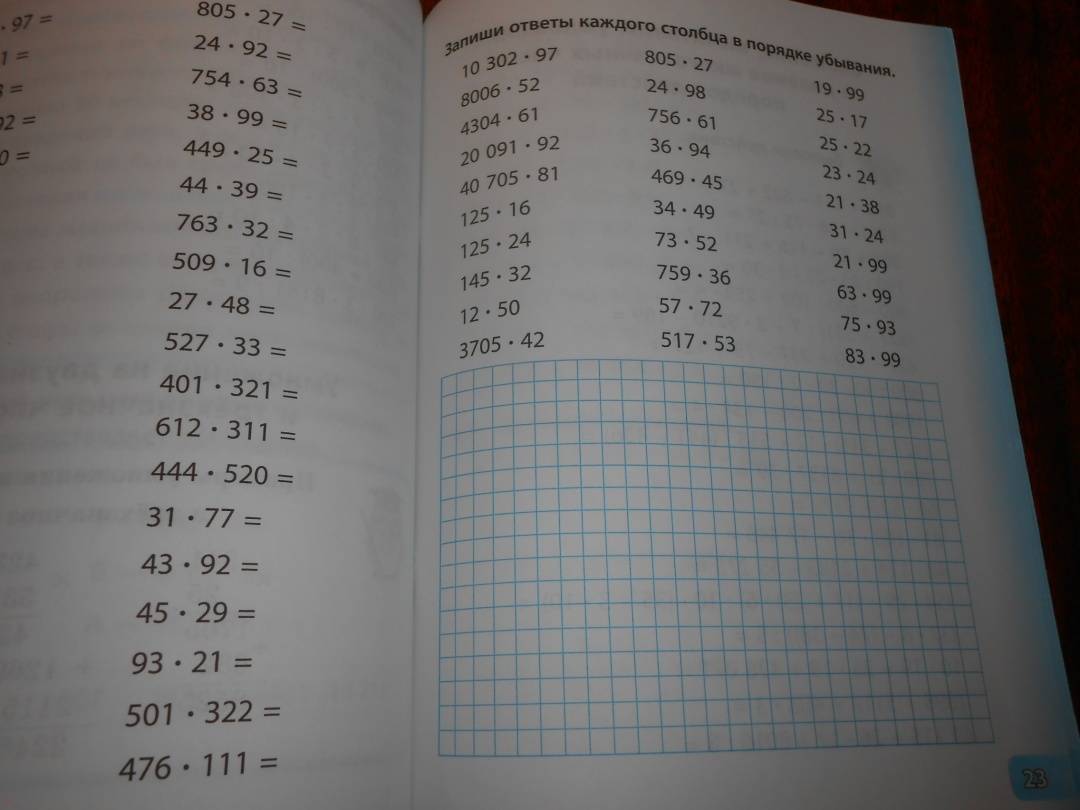 · 97 =
1 =
8 =
92 =
0 =
805 · 27 =
24 · 92 =
754 · 63 =
38 · 99 =
449 · 25 =
44 · 39 =
763 · 32 =
509 · 16 =
27 · 48 =
527 · 33 =
401 · 321 =
612 · 311 =
444 · 520 =
31 · 77 =
43 · 92 =
45 · 29 =
93 · 21 =
501 · 322 =
476 · 111 =
Запиши ответы каждого столбца в порядке убывания.
10 302 · 97
8006 · 52
4304 · 61
20 091 · 92
40 705 · 81
125 · 16
125 · 24
145 · 32
12 · 50
3705 · 42
805 · 27
24 · 98
756 · 61
36 · 94
469 · 45
34 · 49
73 · 52
759 · 36
57 · 72
517 · 53
19 · 99
25 · 17
25 · 22
23 · 24
21 · 38
31 · 24
21 · 99
63 · 99
75 · 93
83 · 99
23